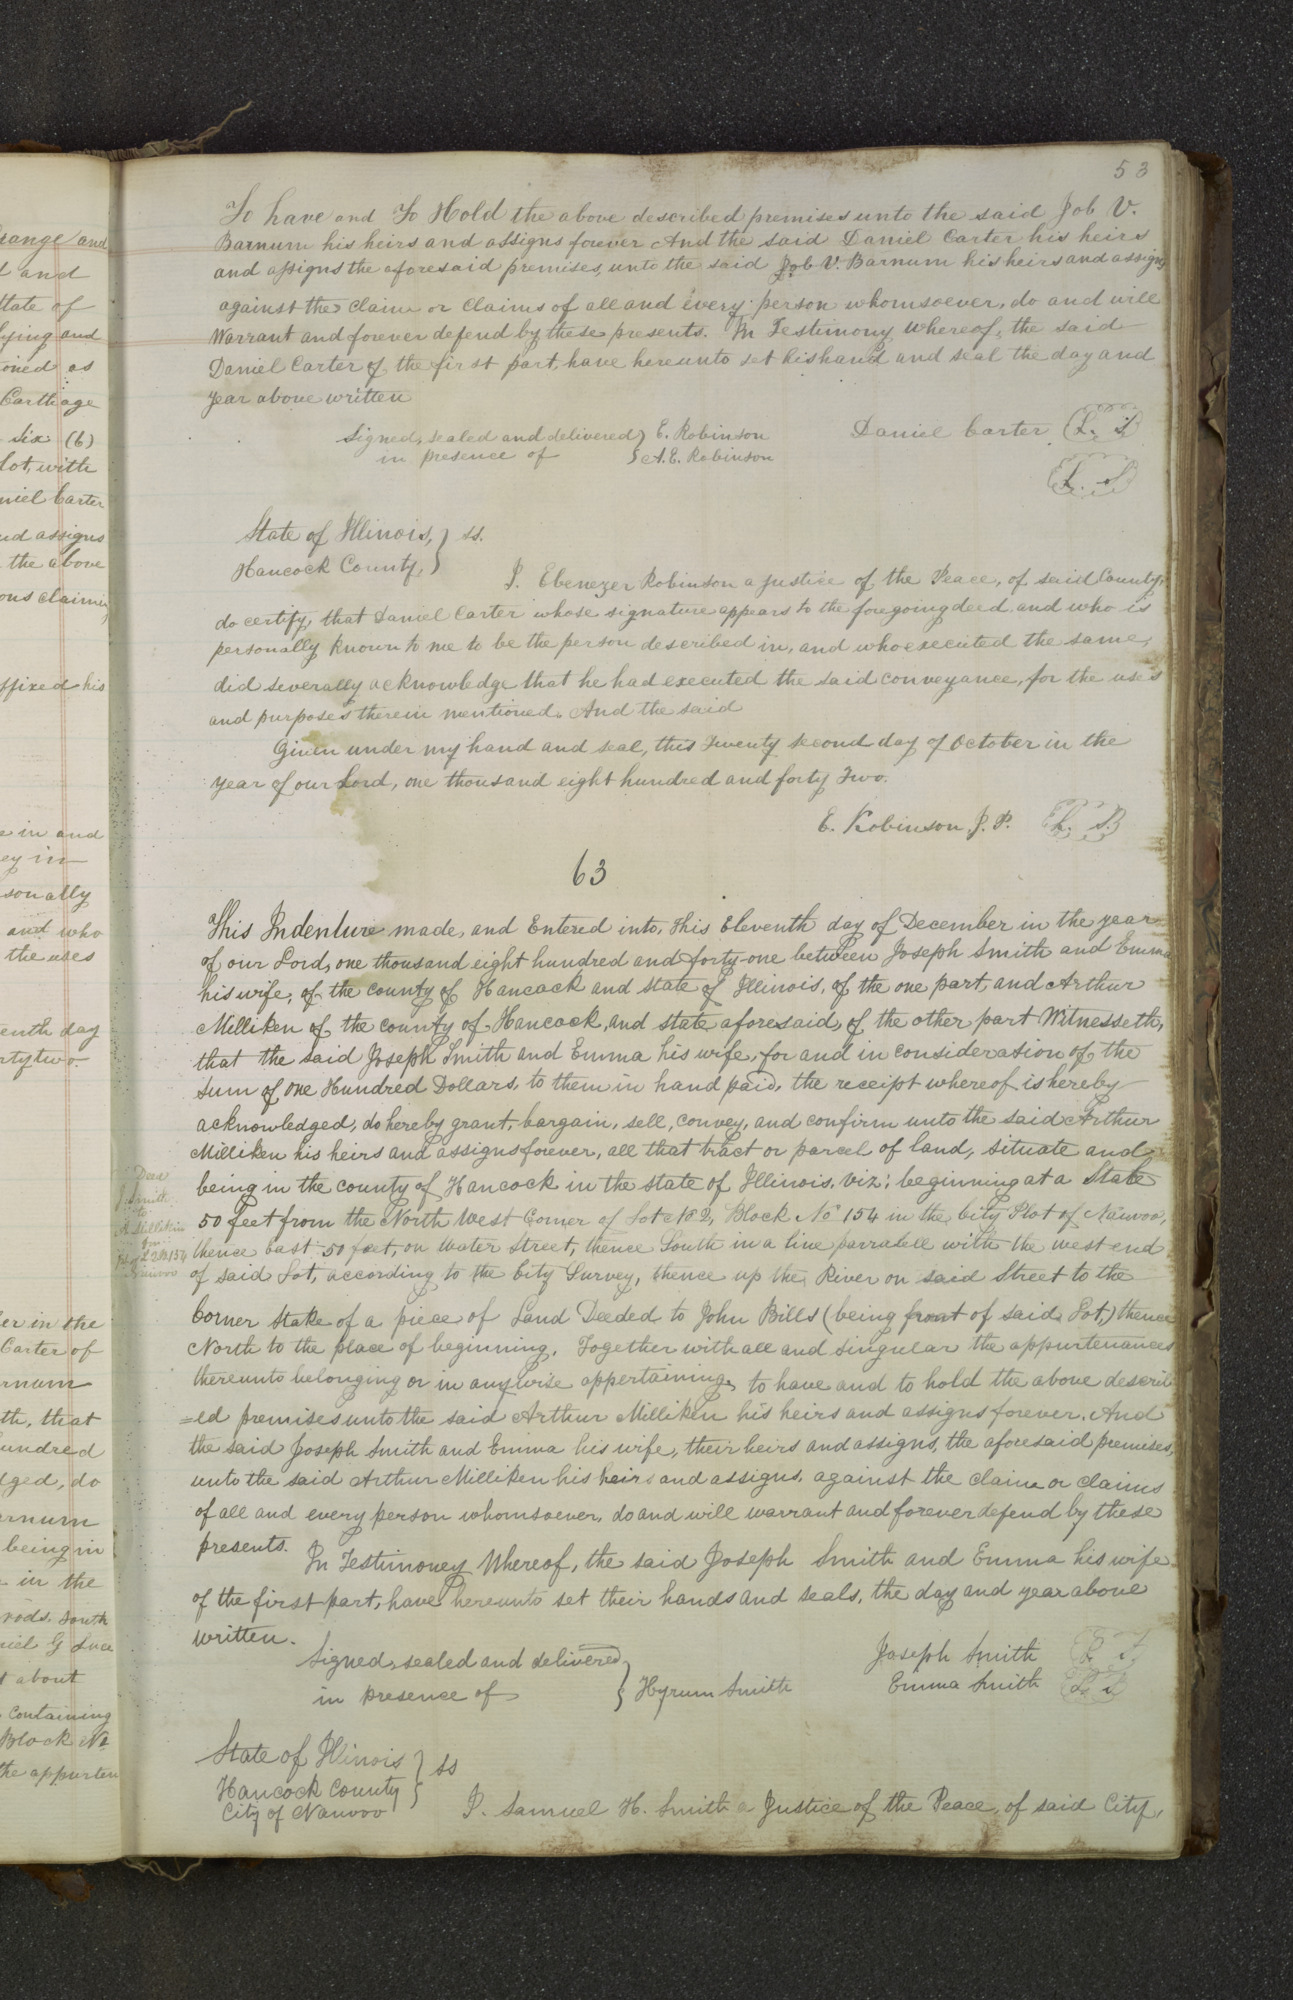 53
To have and To Hold the above described premises unto the said Job V.
Barnum his heirs and assigns forever And the said Daniel Carter his heirs
and assigns the aforesaid premises, unto the said Job V. Barnum his heirs and assigns
against the Claim or Claims of all and every person whomsoever, do and will
Warrant and forever defend by these presents. In Testimony Whereof, the said
Daniel Carter of the first part, have hereunto set his hand and seal the day and
year above written
Signed, sealed and delivered } E. Robinson Daniel Carter L. S
in presence of } A. E. Robinson
L. S
State of Illinois, } ss.
Hancock County, }
I. Ebenezer Robinson a justice of the Peace, of said County,
do certify, that Daniel Carter whose signature appears to the foregoing deed, and who is
personally known to me to be the person described in, and who executed the same,
did severally acknowledge that he had executed the said conveyance, for the uses
and purposes therein mentioned. And the said
Given under my hand and seal, this Twenty second day of October in the
year of our Lord, one thousand eight hundred and forty Two.
E. Robinson, J. P. L. S.
63
This Indenture made, and Entered into, this Eleventh day of December in the year
of our Lord, one thousand eight hundred and forty-one between Joseph Smith and Emma
his wife, of the county of Hancock and state of Illinois, of the one part, and Arthur
Milliken of the county of Hancock, and state aforesaid, of the other part Witnesseth,
that the said Joseph Smith and Emma his wife, for and in consideration of the
sum of One Hundred Dollars, to them in hand paid, the receipt whereof is hereby
acknowledged, do hereby grant, bargain, sell, convey, and confirm unto the said Arthur
Milliken his heirs and assigns forever, all that tract or parcel of land, situate and
being in the county of Hancock in the state of Illinois, viz: beginning at a Stake
50 feet from the North West Corner of Lot No 2, Block No 154 in the City Plot of Nauvoo,
thence East 50 feet, on Water Street, thence South in a line parralell with the west end
of said Lot, according to the City Survey, thence up the River on said Street to the
Corner Stake of a piece of Land Deeded to John Bills (being front of said Lot,) thence
North to the place of beginning. Together with all and singular the appurtenances
thereunto belonging or in anywise appertaining, to have and to hold the above describ
=ed premises unto the said Arthur Milliken his heirs and assigns forever. And
the said Joseph Smith and Emma his wife, their heirs and assigns, the aforesaid premises,
unto the said Arthur Milliken his heirs and assigns, against the claim or claims
of all and every person whomsoever, do and will warrant and forever defend by these
presents. In Testimoney Whereof, the said Joseph Smith and Emma his wife
of the first part, have hereunto set their hands and seals, the day and year above
written.
Signed, sealed and delivered } Joseph Smith L. S.
in presence of } Hyrum Smith Emma Smith L. S
State of Illinois } ss
Hancock County }
City of Nauvoo
I. Samuel H. Smith a Justice of the Peace, of said City,
Deed
J Smith
to
A Milliken
154
Nauvoo
and
and
State of
lying and
as
Carthage
six (6)
lot, with
Carter
assigns
the above
his
in and
in
and who
the uses
day
in the
Carter of
that
do
being in
in the
rods. South
about
containing
Block No